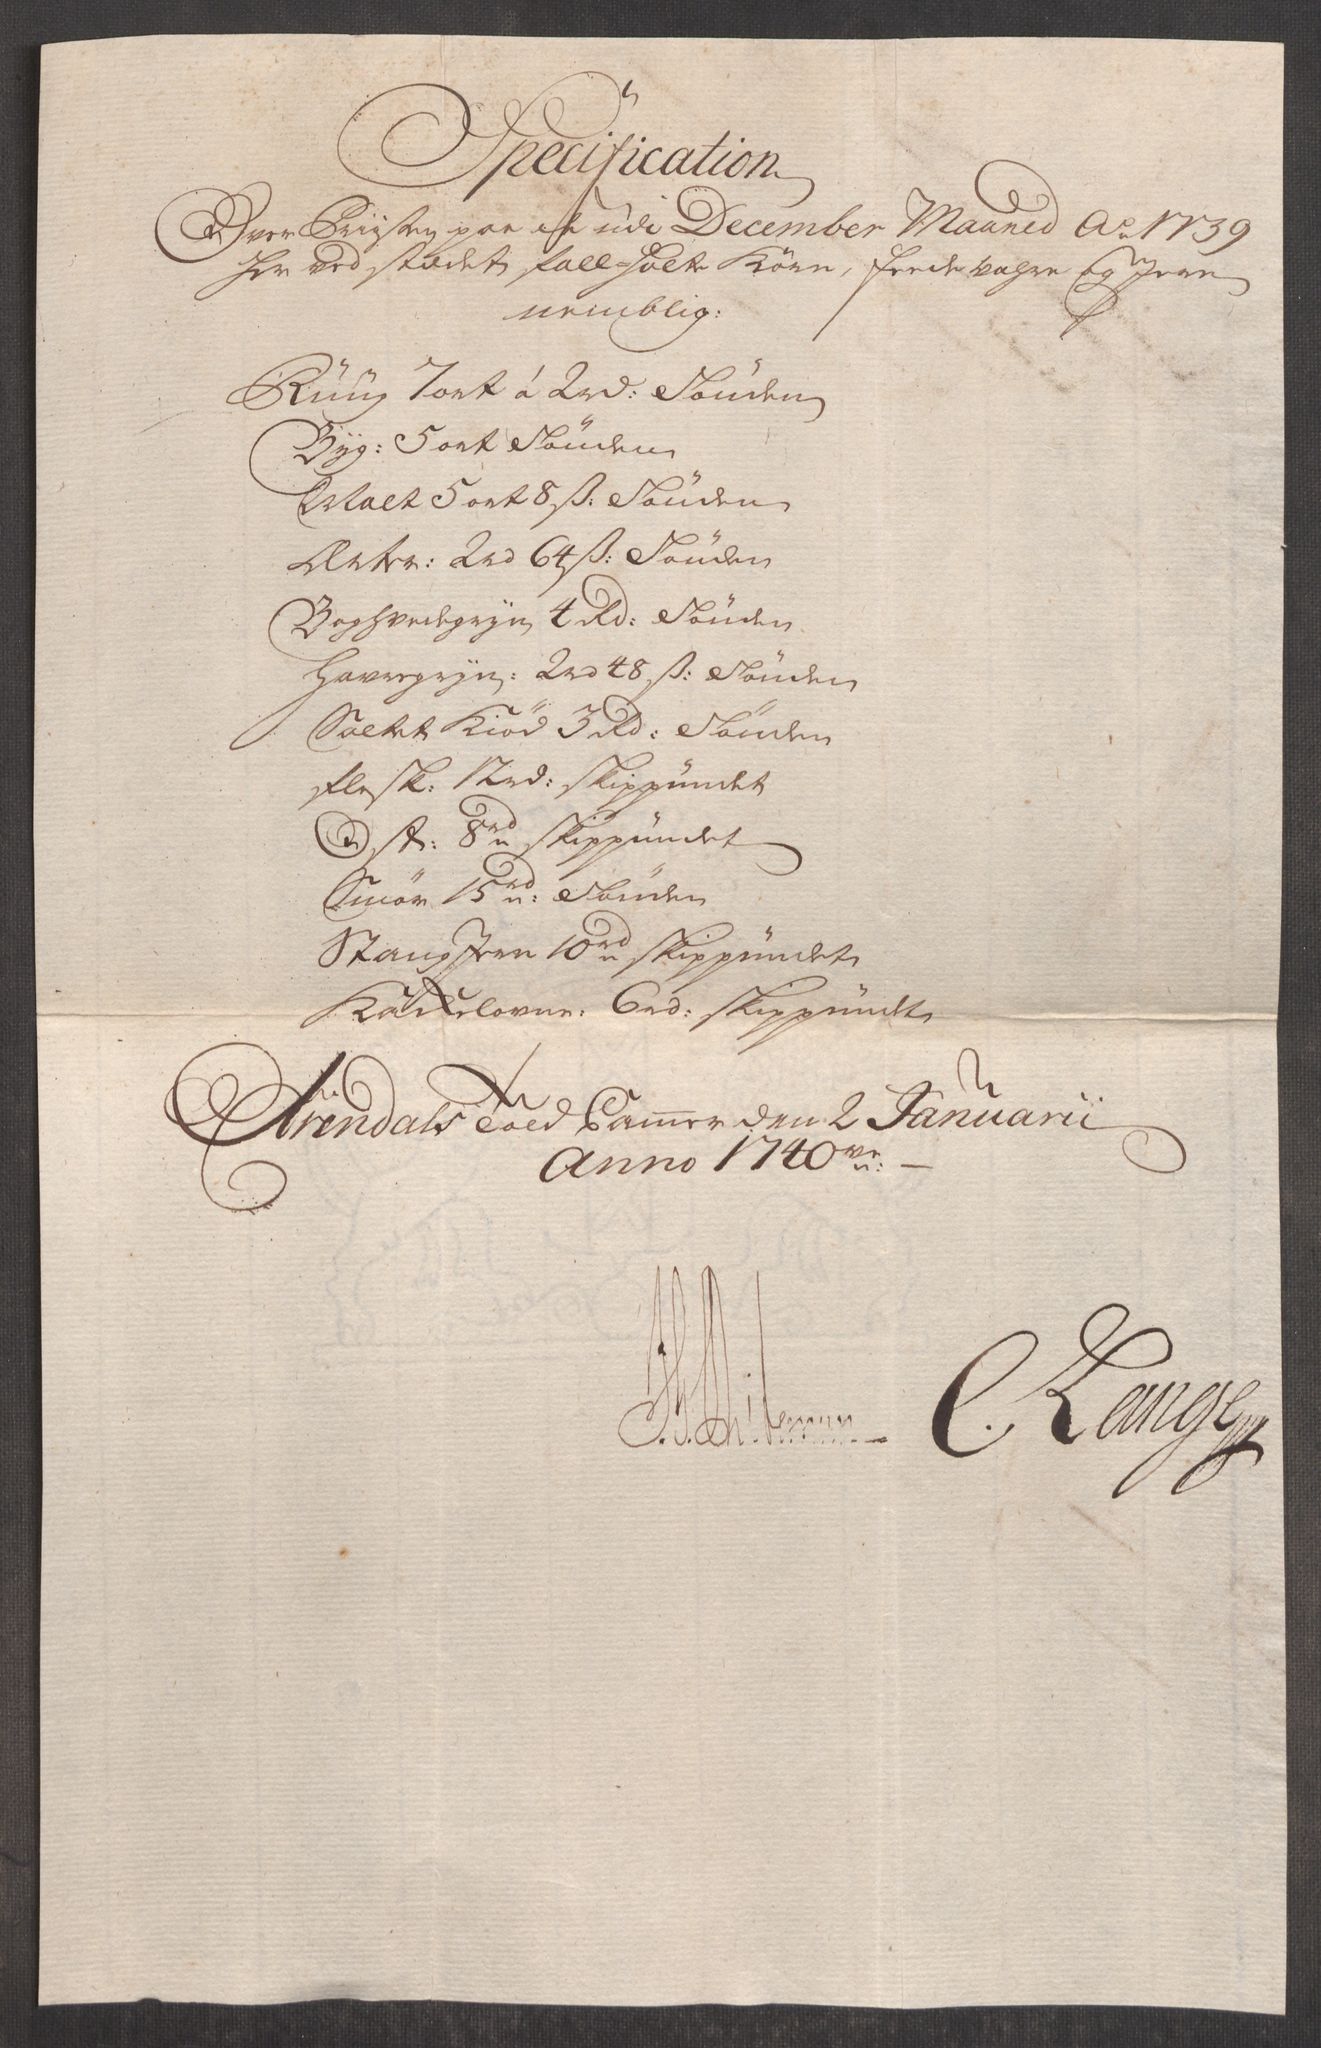 Specification
Over Prisen paa de udi December Maaned Ao 1739
her ved stædet fall-holte Körn, feede vahre og Jern
nemblig:
Rüüg 7 ort á 2 rd: Tönden
Byg: 5 ort Tönden
Malt 5 ort 8 ß: Tönden
Ærter: 2 rd 64 ß: Tönden
Boghvedegryn 4 Rd: Tönden
Havregryn: 2 rd 48 ß: Tönden
Saltet Kiöd 3 Rd: Tönden
flesk: 12 rd: skippündet
Ost: 8 rd skippündet
Smör 15 rd: Tönden
Stang Jern 10 rd skippündet
Kackelovne: 6 rd: skippündt
Arendals Told Camer den 2 Januarii
Anno 1740
C. Lange